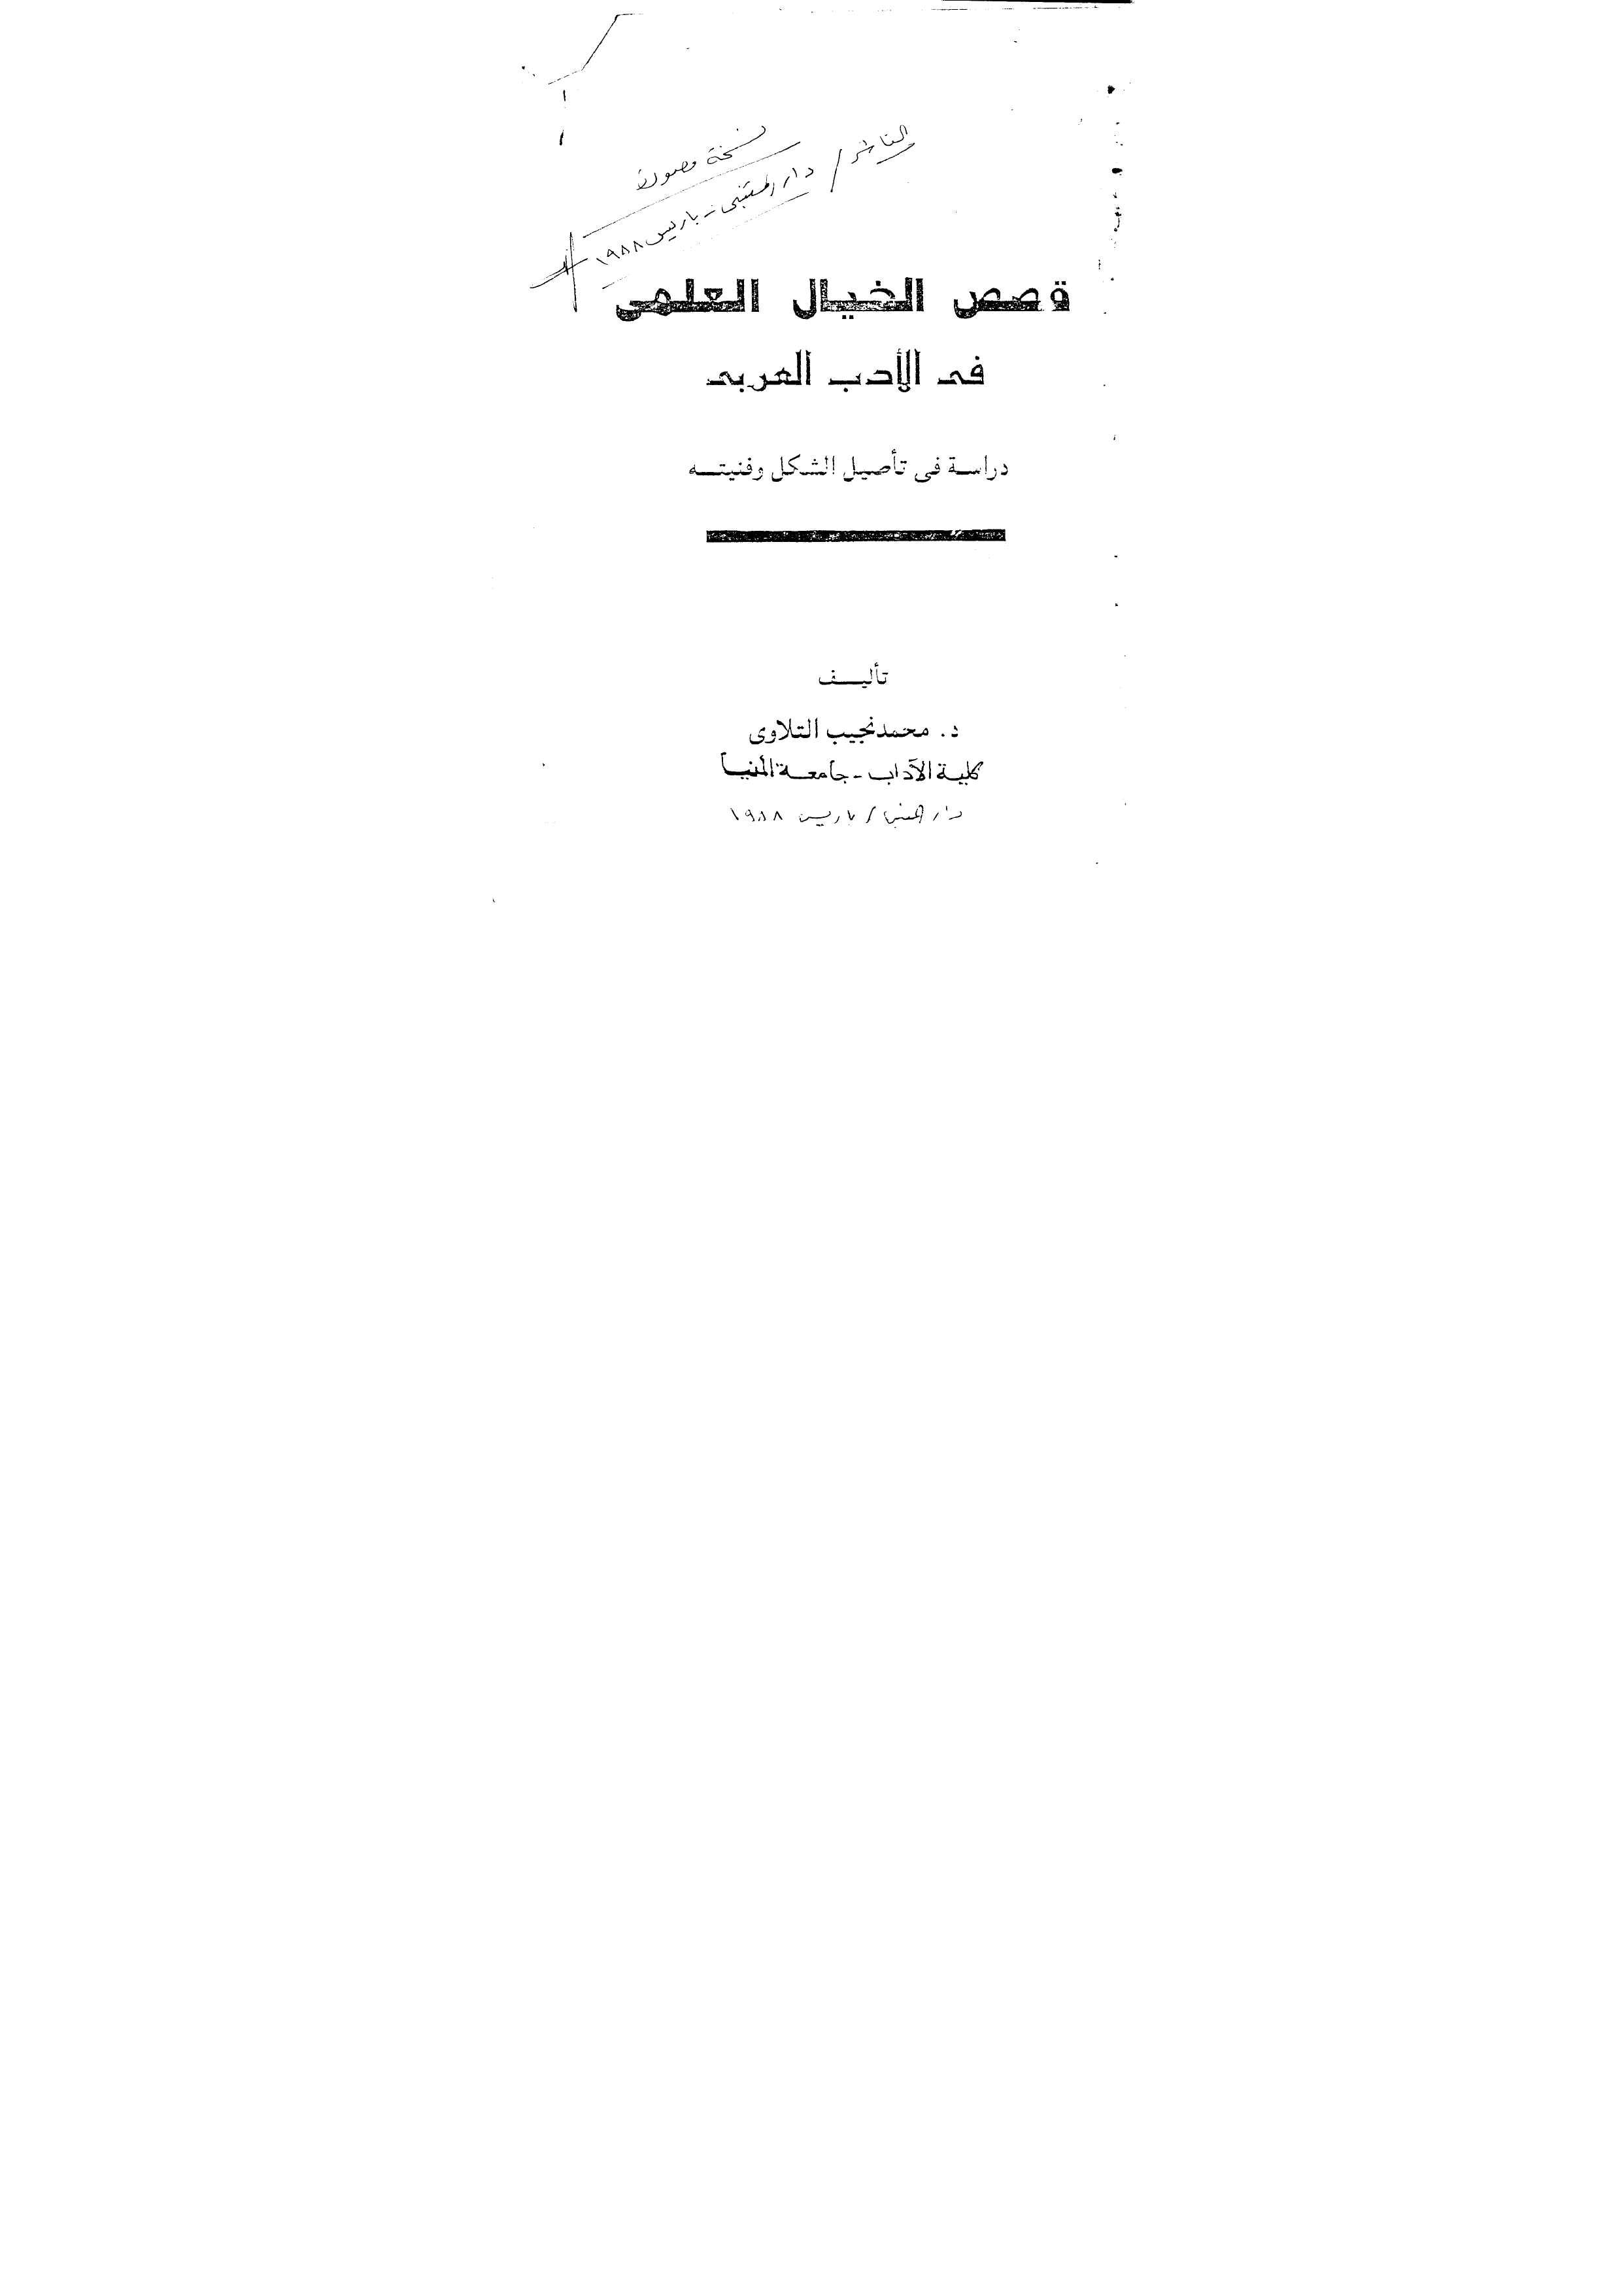 نسخة مصورة
الناشر / دار المتنبى - باريس ١٩٨٨
قصص الخيال العلمى
فى الأدب العربى
دراسة فى تأصيل الشكل وفنيته
تأليف
د. محمد نجيب التلاوى
كلية الآداب - جامعة المنيا
دار المتنبى / باريس ١٩٨٨